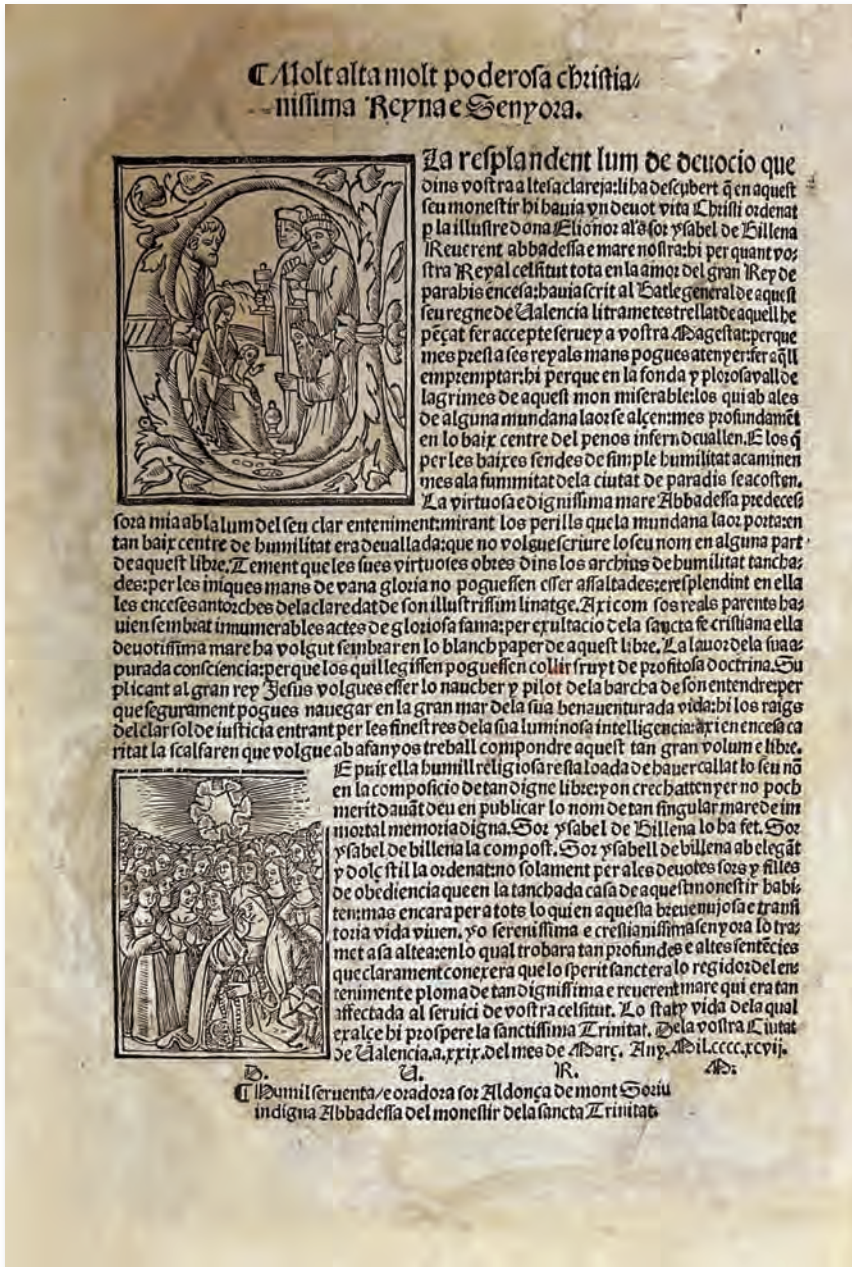 ¶ Molt alta molt poderosa christia⸗
nissima Reyna e Senyora.
La resplandent lum de deuocio que
dins vostra altesa clareja: li ha descubert q̃ en aquest
seu monestir hi hauia vn deuot vita Christi ordenat
ꝑ la illustre dona Elionor als sor ysabel de Billena
Reuerent abbadessa e mare nostra: hi per quant vo⸗
stra Reyal celsitut tota en la amor del gran Rey de
parahis encesa: hauia scrit al Batle general de aquest
seu regne de Ualencia li trametes trellat de aquell he
pẽçat fer accepte seruey a vostra Magestat: perque
mes prest a ses reyals mans pogues atenyer: fer aq̃ll
empremptar: hi perque en la fonda y plorosa vall de
lagrimes de aquest mon miserable: los qui ab ales
de alguna mundana laor se alçen: mes profundamẽt
en lo baix centre del penos infern deuallen. E los q̃
per les baixes sendes de simple humilitat acaminen
mes ala summitat dela ciutat de paradis se acosten.
La virtuosa e dignissima mare Abbadessa predeces⸗
sora mia ab la lum del seu clar enteniment: mirant los perills que la mundana laor porta: en
tan baix centre de humilitat era deuallada: que no volgue scriure lo seu nom en alguna part
de aquest libre. Tement que les sues virtuoses obres dins los archius de humilitat tancha⸗
des: per les iniques mans de vana gloria no poguessen esser assaltades: e resplendint en ella
les enceses antorches dela claredat de son illustrissim linatge. Axi com sos reals parents ha⸗
uien sembrat innumerables actes de gloriosa fama: per exultacio dela sancta fe cristiana ella
deuotissima mare ha volgut sembrar en lo blanch paper de aquest libre. La lauor dela sua a⸗
purada consciencia: perque los qui llegissen poguessen collir fruyt de profitosa doctrina. Su
plicant al gran rey Jesus volgues esser lo naucher y pilot dela barcha de son entendre: per
que segurament pogues nauegar en la gran mar dela sua benauenturada vida: hi los raigs
del clar sol de iusticia entrant per les finestres dela sua luminosa intelligencia: axi en encesa ca
ritat la scalfaren que volgue ab afanyos treball compondre aquest tan gran volum e libre.
E puix ella humil religiosa resta loada de hauer callat lo seu nõ
en la composicio de tan digne libre: yo n crech attenyer no poch
merit dauãt deu en publicar lo nom de tan singular mare de im
mortal memoria digna. Sor ysabel de Billena lo ha fet. Sor
ysabel de billena la compost. Sor ysabell de billena ab elegãt
y dolç stil la ordenat: no solament per ales deuotes sors y filles
de obediencia que en la tanchada casa de aquest monestir habi⸗
ten: mas encara per a tots lo qui en aquesta breu enujosa e transi
toria vida viuen. yo serenissima e crestianissima senyora lo tra⸗
met a sa altea: en lo qual trobara tan profundes e altes sentẽcies
que clarament conexera que lo sperit sanct era lo regidor del en⸗
teniment e ploma de tan dignissima e reuerent mare qui era tan
affectada al seruici de vostra celsitut. Lo stat y vida dela qual
exalce hi prospere la sanctissima Trinitat. Dela vostra Ciutat
de Ualencia. a .xxix. del mes de Març. Any. Mil.cccc.xcvij.
D. U. R. M.
¶ Humil seruenta / e oradora sor Aldonça de mont Soriu
indigna Abbadessa del monestir dela sancta Trinitat.